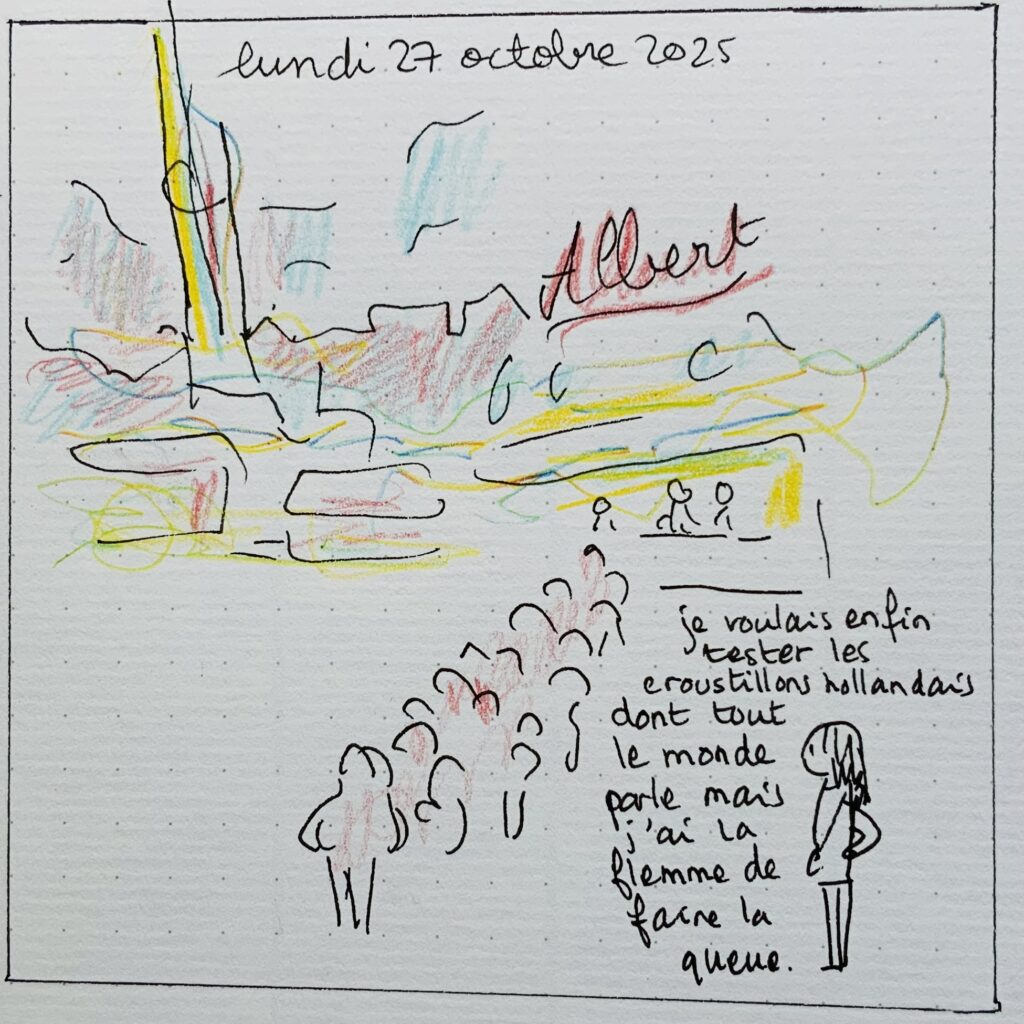 lundi 27 octobre 2025
Albert
je voulais enfin
tester les
croustillons hollandais
dont tout
le monde
parle mais
j'ai la
flemme de
faire la
queue.